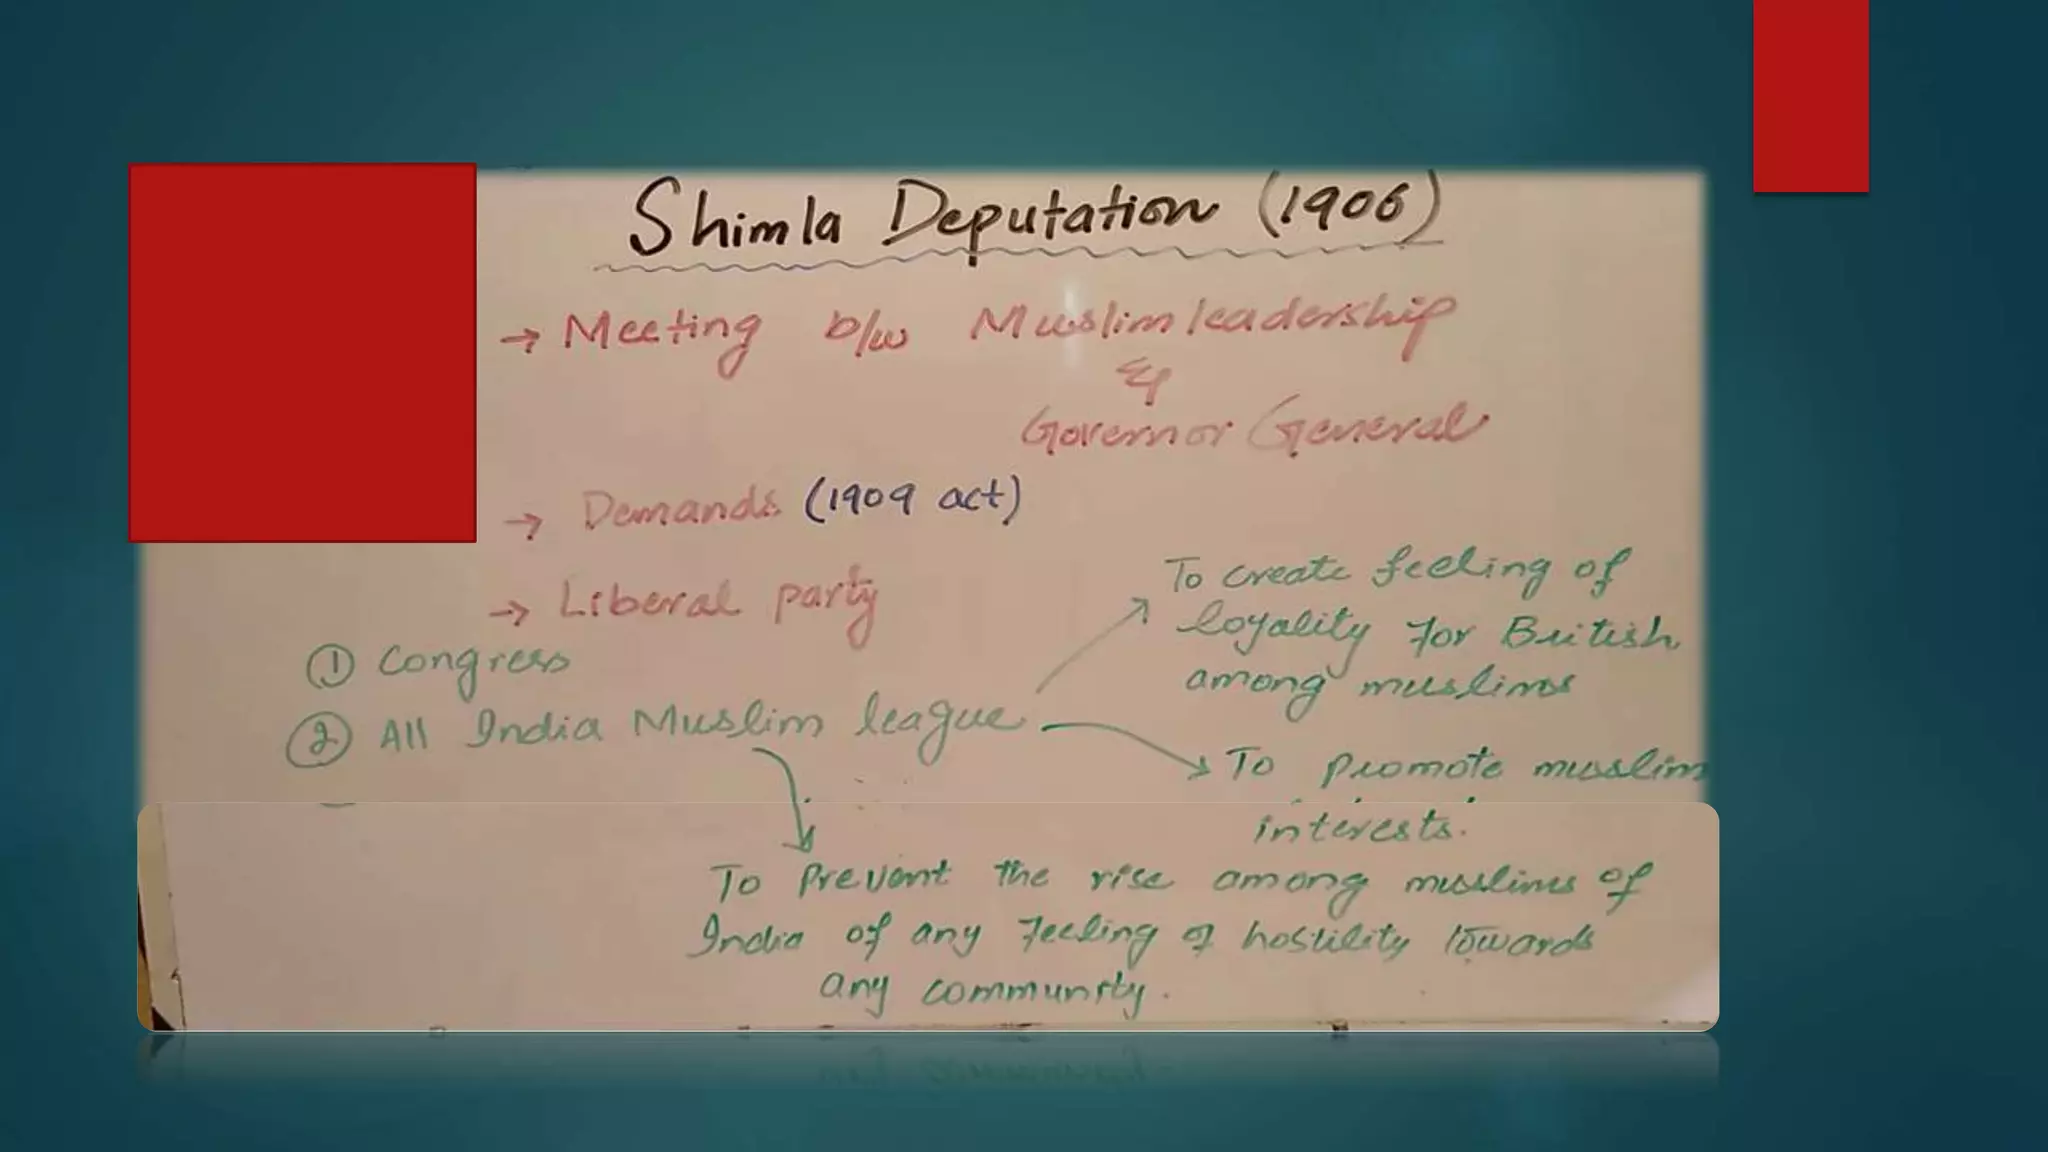 Shimla Deputation (1906)
→ Meeting b/w Muslim leadership
&
Governor General
→ Demands (1909 act)
→ Liberal party
① Congress
② All India Muslim league
To create feeling of
loyality for British
among muslims
To promote muslim
interests.
To Prevent the rise among muslims of
India of any feeling of hostility towards
any community.